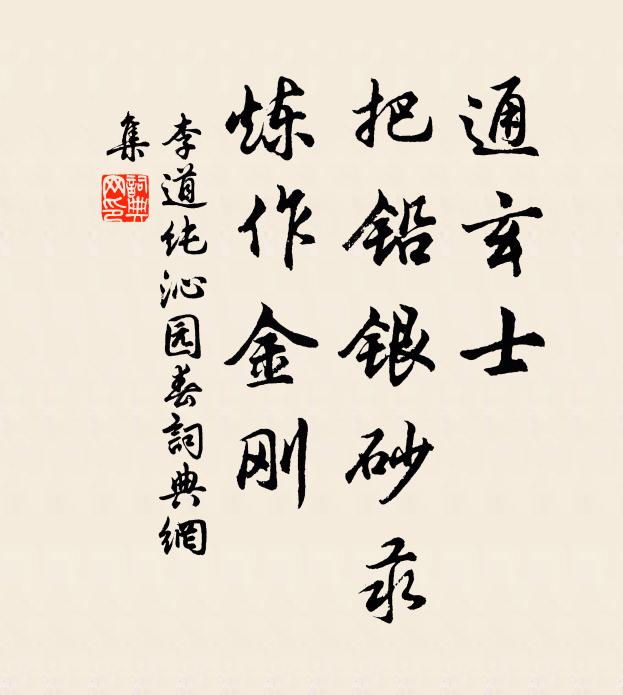 通玄士
把铅银砂汞
炼作金刚
李道纯沁园春詞典網
集
詞典
网印